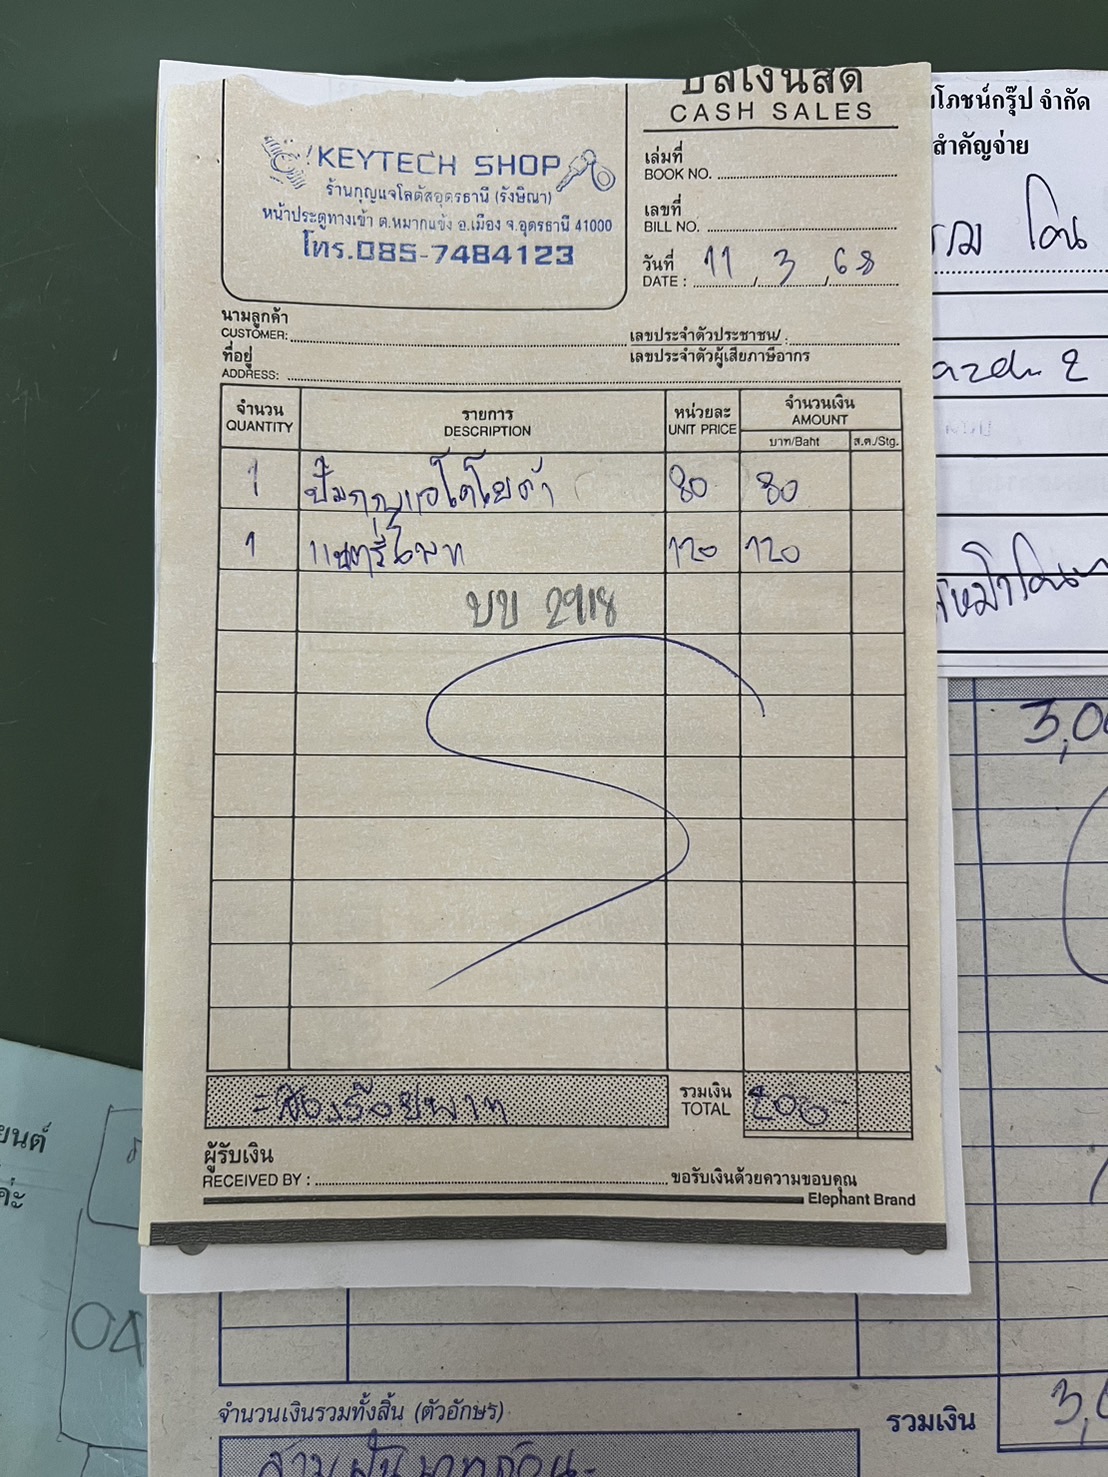 บิลเงินสด
CASH SALES
KEYTECH SHOP
ร้านกุญแจโลตัสอุดรธานี (รังษิณา)
หน้าประตูทางเข้า ต.หมากแข้ง อ.เมือง จ.อุดรธานี 41000
โทร.085-7484123
เล่มที่
BOOK NO.
เลขที่
BILL NO.
วันที่ 11 / 3 / 68
DATE :
นามลูกค้า
CUSTOMER:
เลขประจำตัวประชาชน/
ที่อยู่
เลขประจำตัวผู้เสียภาษีอากร
ADDRESS:
จำนวน รายการ หน่วยละ จำนวนเงิน
QUANTITY DESCRIPTION UNIT PRICE AMOUNT
บาท/Baht ส.ต./Stg.
1 ปั๊มกุญแจโตโยต้า 80 80
1 120 120
บบ 2918
=สองร้อยบาท รวมเงิน 200-
TOTAL
ผู้รับเงิน
RECEIVED BY : ขอรับเงินด้วยความขอบคุณ
Elephant Brand
โภชน์กรุ๊ป จำกัด
สำคัญจ่าย
โอน
2
3,0
ยนต์
ค่ะ
04
จำนวนเงินรวมทั้งสิ้น (ตัวอักษร)
รวมเงิน 3,0
สามพันบาทถ้วน-